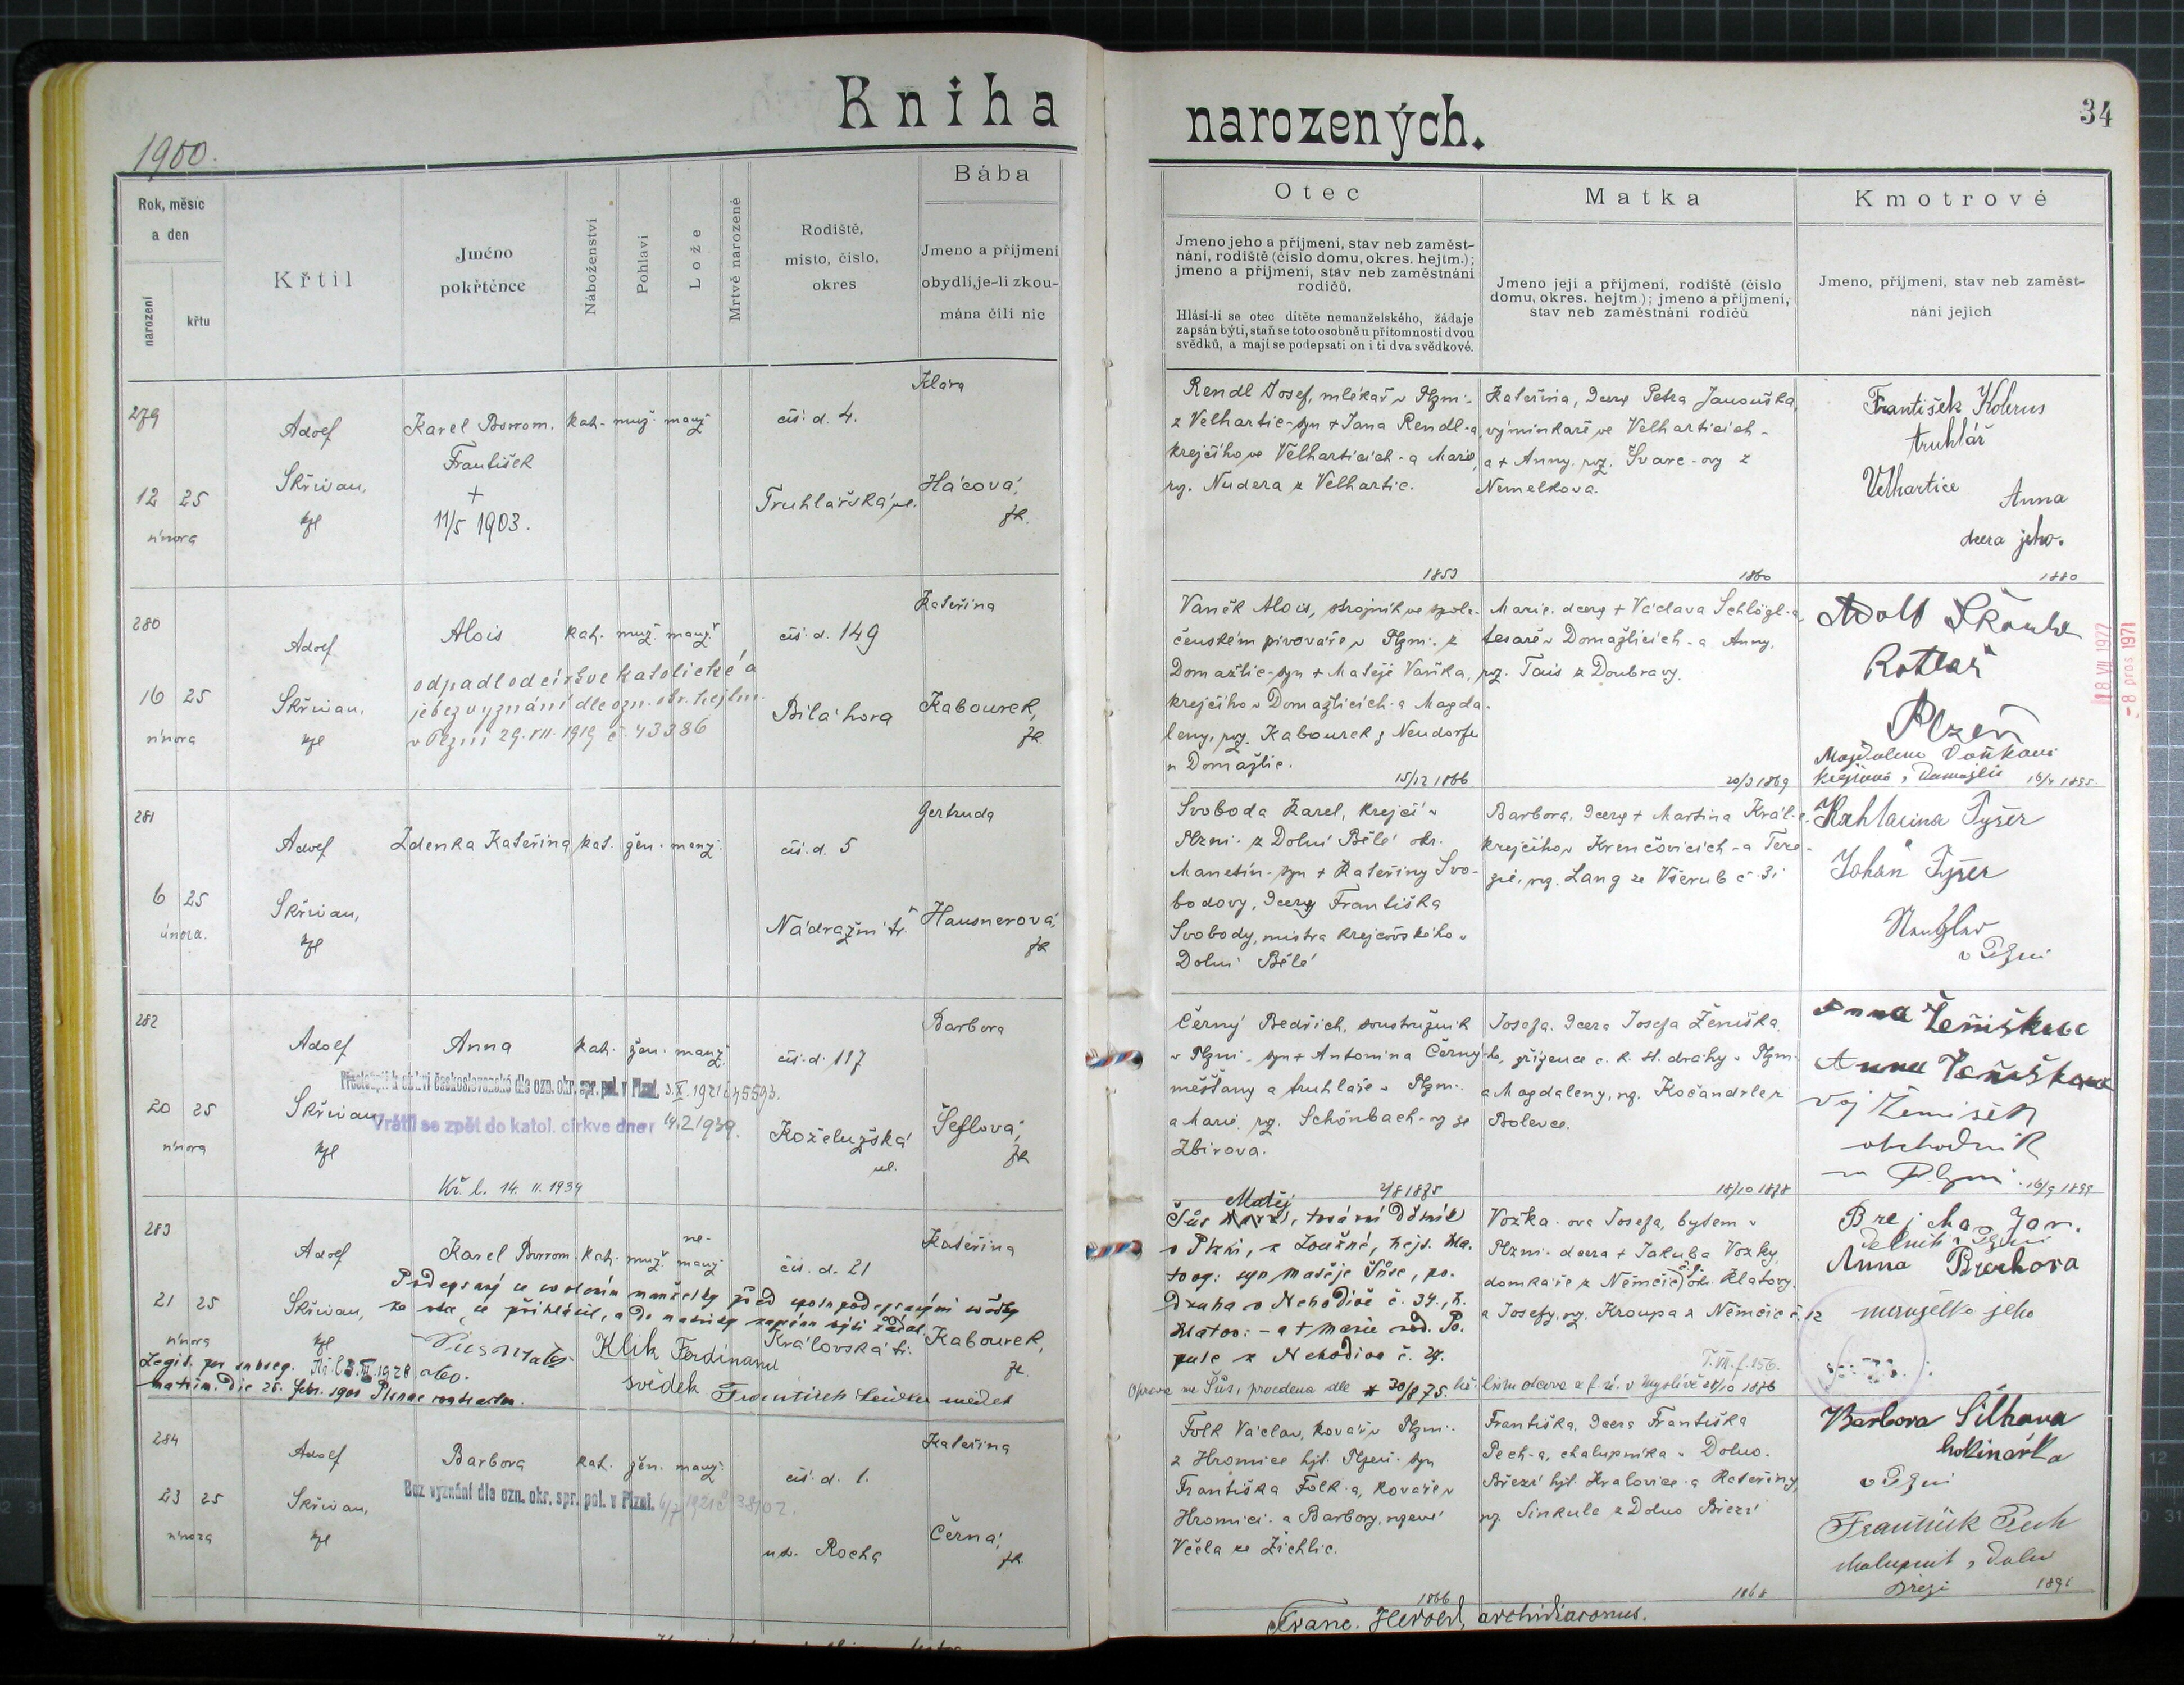 Kniha
narozených.
34
1900.
Rok, měsíc
a den
narození
křtu
Křtil
Jméno
pokřtěnce
Náboženství
Pohlaví
Lože
Mrtvě narozené
Rodiště,
místo, číslo,
okres
Bába
Jmeno a přijmení
obydlí, je-li zkou-
mána čili nic
Otec
Jmeno jeho a příjmení, stav neb zaměst-
nání, rodiště (číslo domu, okres. hejtm.);
jmeno a příjmení, stav neb zaměstnání
rodičů.
Hlásí-li se otec dítěte nemanželského, žádaje
zapsán býti, staň se toto osobně u přítomnosti dvou
svědků, a mají se podepsati on i ti dva svědkové.
Matka
Jmeno její a příjmení, rodiště (číslo
domu, okres. hejtm.); jmeno a příjmení,
stav neb zaměstnání rodičů
Kmotrové
Jmeno, příjmení, stav neb zaměst-
nání jejich
279
12 25
února
Adolf
Skřivan,
kpl
Karel Borrom.
František
+
11/5 1903.
kat. muž. manž.
čís. d. 4.
Truhlářská ul.
Klára
Hácová,
zk.
Rendl Josef, mlékař v Plzni -
z Velhartic - syn + Jana Rendl-a,
krejčího ve Velharticích - a Marie,
roz. Nudera z Velhartic.
1853
Kateřina, dcera Petra Janouška,
výminkáře ve Velharticích -
a + Anny, roz. Švarc-ovy z
Nemelkova.
1860
František Kolerus
truhlář
Velhartice
Anna
dcera jeho.
1880
280
16 25
února
Adolf
Skřivan,
kpl
Alois
kat. muž. manž.
odpadl od církve katolické a
je bez vyznání dle ozn. okr. hejtm.
v Plzni 29. VII. 1919 č. 43386
čís. d. 149
Bílá hora
Kateřina
Kabourek,
zk.
Vaněk Alois, strojník ve spole-
čenském pivovaře v Plzni - z
Domažlic - syn + Matěje Vaňka,
krejčího v Domažlicích - a Magda-
leny, roz. Kabourek z Neudorfu
u Domažlic.
15/12 1866
Marie, dcera + Václava Schlögl-a,
tesaře v Domažlicích - a Anny,
roz. Tais z Doubravy.
20/3 1869
Adolf
Kotlář
Plzeň
Magdalena Vaňková
krejčová v Domažlic 16/4 1895.
18 VII 1977
- 8 pros 1971
281
6 25
února.
Adolf
Skřivan,
kpl
Zdenka Kateřina
kat. žen. manž.
čís. d. 5
Nádražní tř.
Gertruda
Hausnerová,
zk
Svoboda Karel, krejčí v
Plzni - z Dolní Bělé okr.
Manetín - syn + Kateřiny Svo-
bodovy, dcery Františka
Svobody, mistra krejčovského v
Dolní Bělé
Barbora, dcera + Martina Král-e,
krejčího v Krenčovicích - a Tere-
zie, roz. Lang ze Všerub č. 31
Katharina Tyšer
Johan Tyšer
v Plzni
282
20 25
února
Adolf
Skřivan
kpl
Anna
kat. žen. manž.
Přestoupila k církvi československé dle ozn. okr. spr. pol. v Plzni. 3. X. 1921 č. 45593.
Vrátil se zpět do katol. církve dne 14. 2. 1939.
Kř. l. 14. II. 1939
čís. d. 117
Koželužská
ul.
Barbora
Šeflová,
zk
Černý Bedřich, soustružník
v Plzni - syn + Antonína Černý-ho,
měšťany a truhláře v Plzni -
a Marie, roz. Schönbach-ovy ze
Zbirova.
2/8 1875
Josefa, dcera Josefa Ženíška,
zřízence c. k. st. dráhy v Plzni -
a Magdaleny, roz. Kočandrle z
Bolevce.
18/10 1878
Anna Ženíškova
Anna Ženíškova
Voj Ženíšek
obchodník
v Plzni. 16/9 1899
283
21 25
února
Adolf
Skřivan,
kpl
Karel Borrom.
kat. muž. ne-
manž
Podepsaný se
Legit. per subseq.
matrim. die 25. febr. 1901 Plsnae contractum.
Kř. l. 3. III. 1928
otec.
Klik Ferdinand
svědek
František
svědek
čís. d. 21
Královská tř.
Kateřina
Kabourek,
zk.
Matěj
Šůs, tovární dělník
v Plzni, z Loužné, hejt. Kla-
tovy: syn Matěje Šůse, po-
druha v Nehodivě č. 34., h.
Klatov: - a + Marie rod. Po-
pule z Nehodiva č. 27.
Oprava na Šůs, provedena dle
* 20/8 75.
Vozka-ova Josefa, bytem v
Plzni - dcera + Jakuba Vozky,
domkáře z Němčic okr. Klatovy,
a Josefy, roz. Kroupa z Němčic č. 12
T. III. f. 156.
v Myslívě 28/10 1876
Brejcha Jan.
dělník v Plzni
Anna Brejchova
manželka jeho
284
23 25
února
Adolf
Skřivan,
kpl
Barbora
kat. žen. manž.
Bez vyznání dle ozn. okr. spr. pol. v Plzni. 4/7 1921 č. 38102.
čís. d. 1.
us. Rocha
Kateřina
Černá,
zk
Folk Václav, kovář v Plzni -
z Hromice hjt. Plzeň - syn
Františka Folk-a, kováře v
Hromici - a Barbory, rozené
Včela ze Žichlic.
1866
Františka, dcera Františka
Pech-a, chalupníka v Dolno-
Březí hjt. Kralovice - a Kateřiny,
roz. Sinkule z Dolno Březí
1868
Barbora Šilhava
hokinářka
v Plzni
František Pech
chalupník v Dolní
Březí 1891
Franc. Herold, archidiaconus.